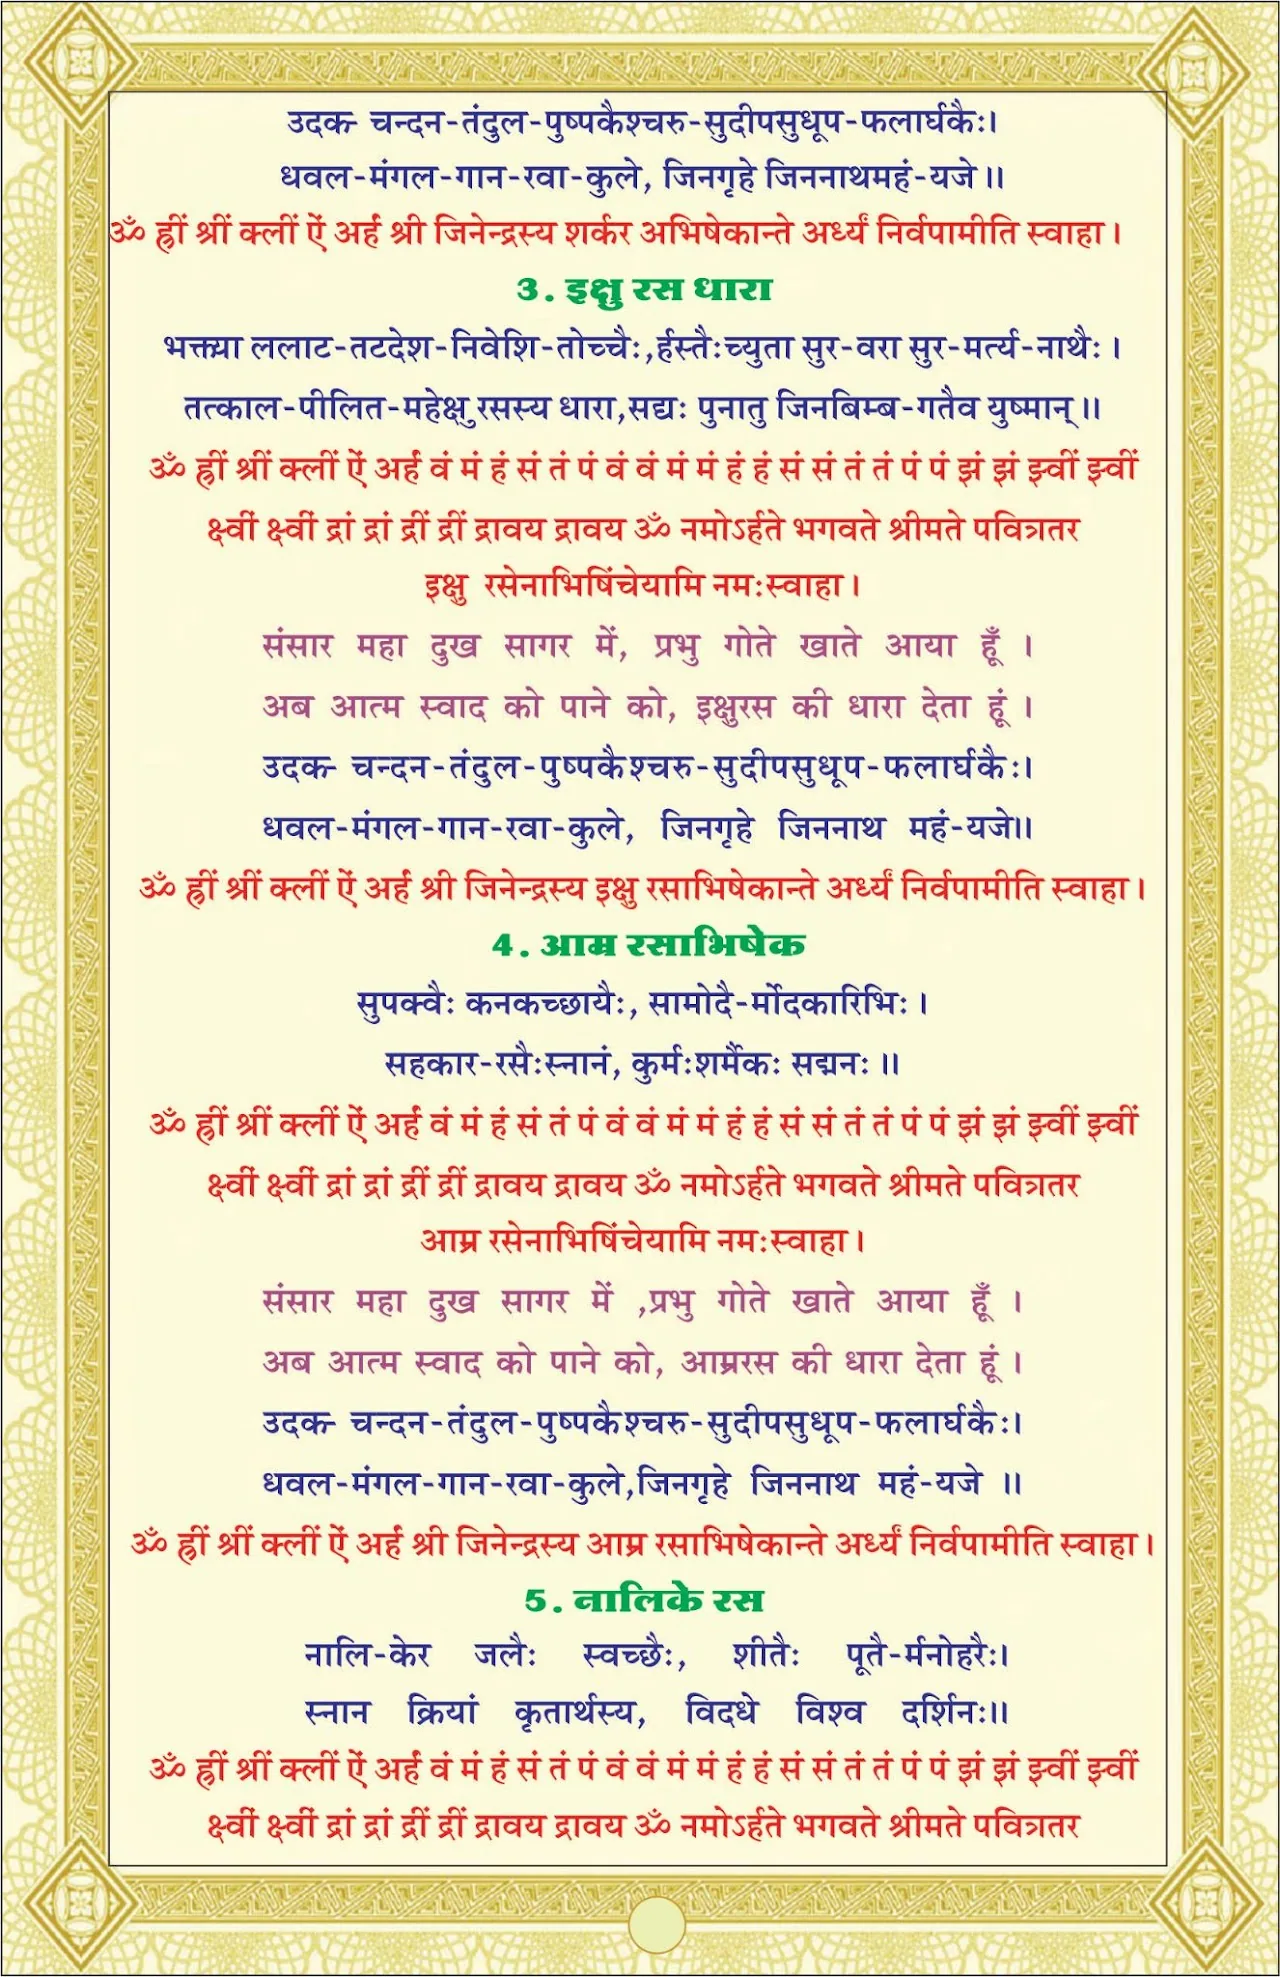 उदक- चन्दन-तंदुल-पुष्पकैश्चरु-सुदीपसुधूप-फलार्घकैः।
धवल-मंगल-गान-रवा-कुले, जिनगृहे जिननाथमहं-यजे।।
ॐ ह्रीं श्रीं क्लीं ऐं अर्हं श्री जिनेन्द्रस्य शर्कर अभिषेकान्ते अर्ध्यं निर्वपामीति स्वाहा।
3. इक्षु रस धारा
भक्त्या ललाट-तटदेश-निवेशि-तोच्चैः,र्हस्तैःच्युता सुर-वरा सुर-मर्त्य-नाथैः।
तत्काल-पीलित-महेक्षु रसस्य धारा,सद्यः पुनातु जिनबिम्ब-गतैव युष्मान्।।
ॐ ह्रीं श्रीं क्लीं ऐं अर्हं वं मं हं सं तं पं वं वं मं मं हं हं सं सं तं तं पं पं झं झं झ्वीं झ्वीं
क्ष्वीं क्ष्वीं द्रां द्रां द्रीं द्रीं द्रावय द्रावय ॐ नमोऽर्हते भगवते श्रीमते पवित्रतर
इक्षु रसेनाभिषिंचेयामि नमःस्वाहा।
संसार महा दुख सागर में, प्रभु गोते खाते आया हूँ ।
अब आत्म स्वाद को पाने को, इक्षुरस की धारा देता हूं ।
उदक- चन्दन-तंदुल-पुष्पकैश्चरु-सुदीपसुधूप-फलार्घकैः।
धवल-मंगल-गान-रवा-कुले, जिनगृहे जिननाथ महं-यजे।।
ॐ ह्रीं श्रीं क्लीं ऐं अर्हं श्री जिनेन्द्रस्य इक्षु रसाभिषेकान्ते अर्ध्यं निर्वपामीति स्वाहा।
4. आम्र रसाभिषेक
सुपक्वैः कनकच्छायैः, सामोदै-र्मोदकारिभिः।
सहकार-रसैःस्नानं, कुर्मःशर्मैकः सद्मनः।।
ॐ ह्रीं श्रीं क्लीं ऐं अर्हं वं मं हं सं तं पं वं वं मं मं हं हं सं सं तं तं पं पं झं झं झ्वीं झ्वीं
क्ष्वीं क्ष्वीं द्रां द्रां द्रीं द्रीं द्रावय द्रावय ॐ नमोऽर्हते भगवते श्रीमते पवित्रतर
आम्र रसेनाभिषिंचेयामि नमःस्वाहा।
संसार महा दुख सागर में ,प्रभु गोते खाते आया हूँ ।
अब आत्म स्वाद को पाने को, आम्ररस की धारा देता हूं ।
उदक- चन्दन-तंदुल-पुष्पकैश्चरु-सुदीपसुधूप-फलार्घकैः।
धवल-मंगल-गान-रवा-कुले,जिनगृहे जिननाथ महं-यजे ।।
ॐ ह्रीं श्रीं क्लीं ऐं अर्हं श्री जिनेन्द्रस्य आम्र रसाभिषेकान्ते अर्ध्यं निर्वपामीति स्वाहा।
5. नालिके रस
नालि-केर जलैः स्वच्छैः, शीतैः पूतै-र्मनोहरैः।
स्नान क्रियां कृतार्थस्य, विदधे विश्व दर्शिनः।।
ॐ ह्रीं श्रीं क्लीं ऐं अर्हं वं मं हं सं तं पं वं वं मं मं हं हं सं सं तं तं पं पं झं झं झ्वीं झ्वीं
क्ष्वीं क्ष्वीं द्रां द्रां द्रीं द्रीं द्रावय द्रावय ॐ नमोऽर्हते भगवते श्रीमते पवित्रतर